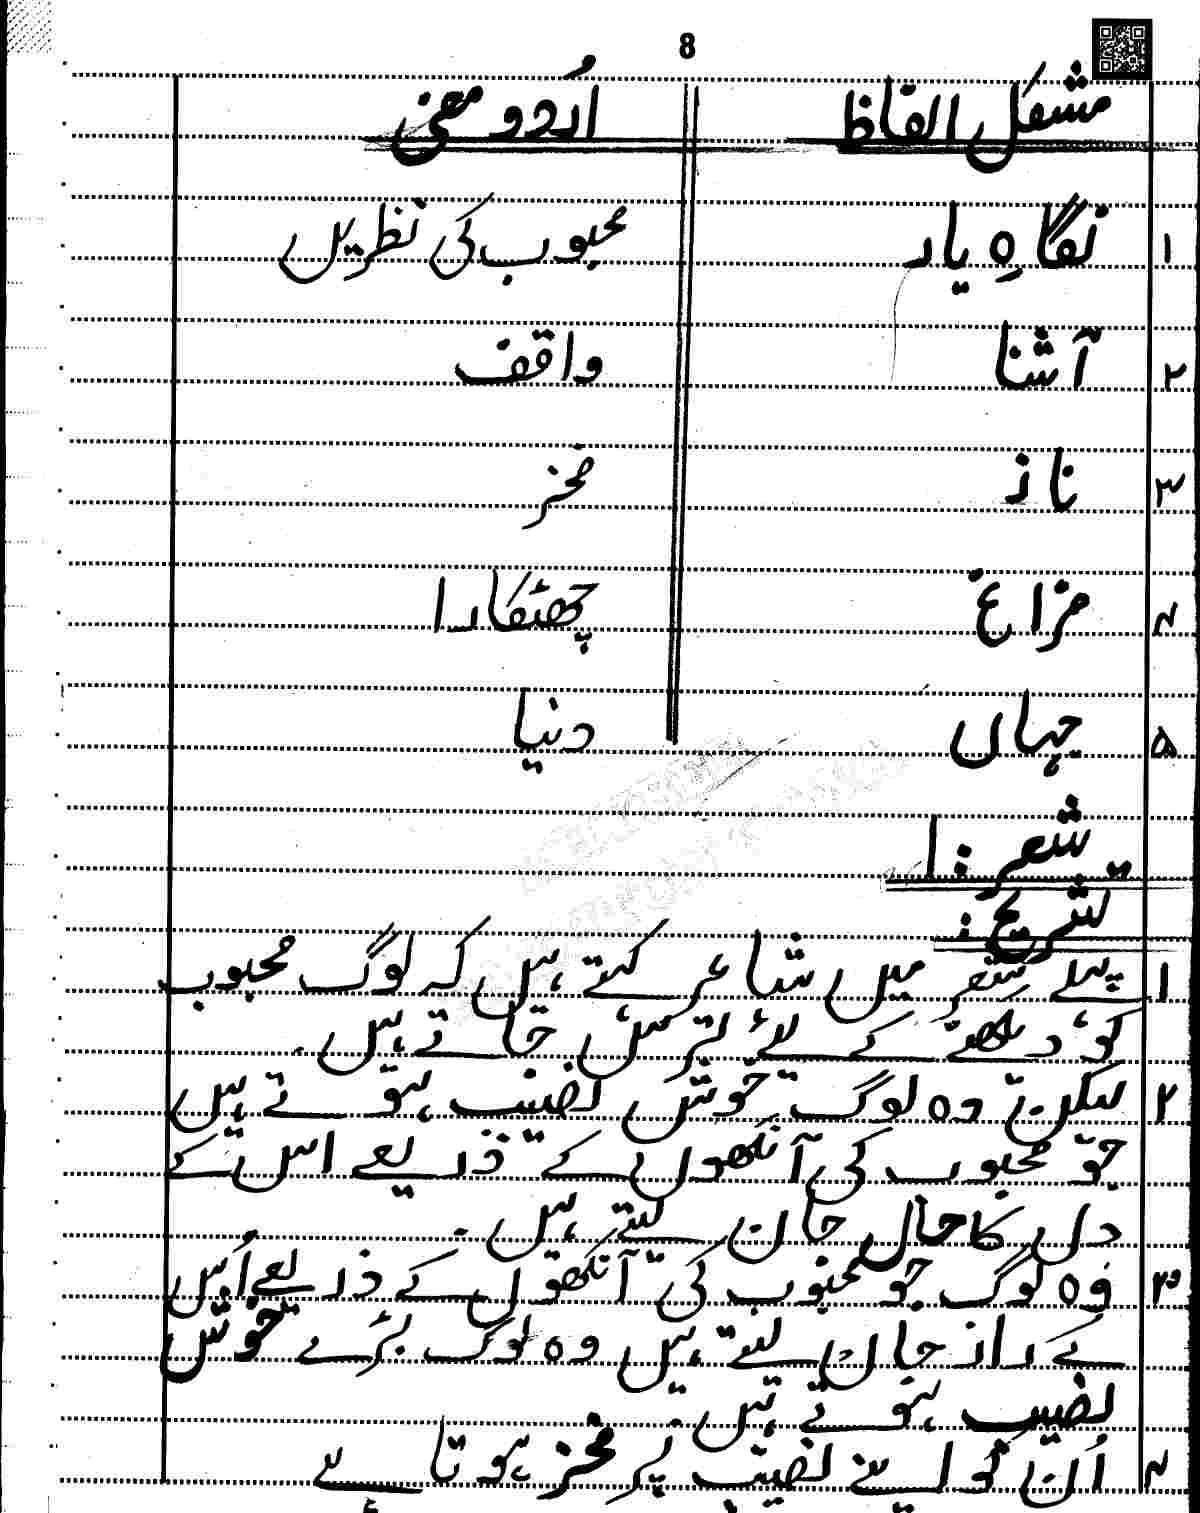 8
مشکل الفاظ اردو معنی
۱ نگاہِ یار محبوب کی نظریں
۲ آشنا واقف
۳ ناز فخر
۴ فراغ چھٹکارا
۵ جہاں دنیا
شعر: ۱
تشریح:
۱ پہلے شعر میں شاعر کہتے ہیں کہ لوگ محبوب
کو دیکھنے کے لئے ترس جاتے ہیں۔
۲ لیکن وہ لوگ خوش نصیب ہوتے ہیں
جو محبوب کی آنکھوں کے ذریعے اس کے
دل کا حال جان لیتے ہیں۔
۳ وہ لوگ جو محبوب کی آنکھوں کے ذریعے اُس
کے راز جان لیتے ہیں وہ لوگ بڑے خوش
نصیب ہوتے ہیں۔
۴ اُن کو اپنے نصیب پر فخر ہوتا ہے